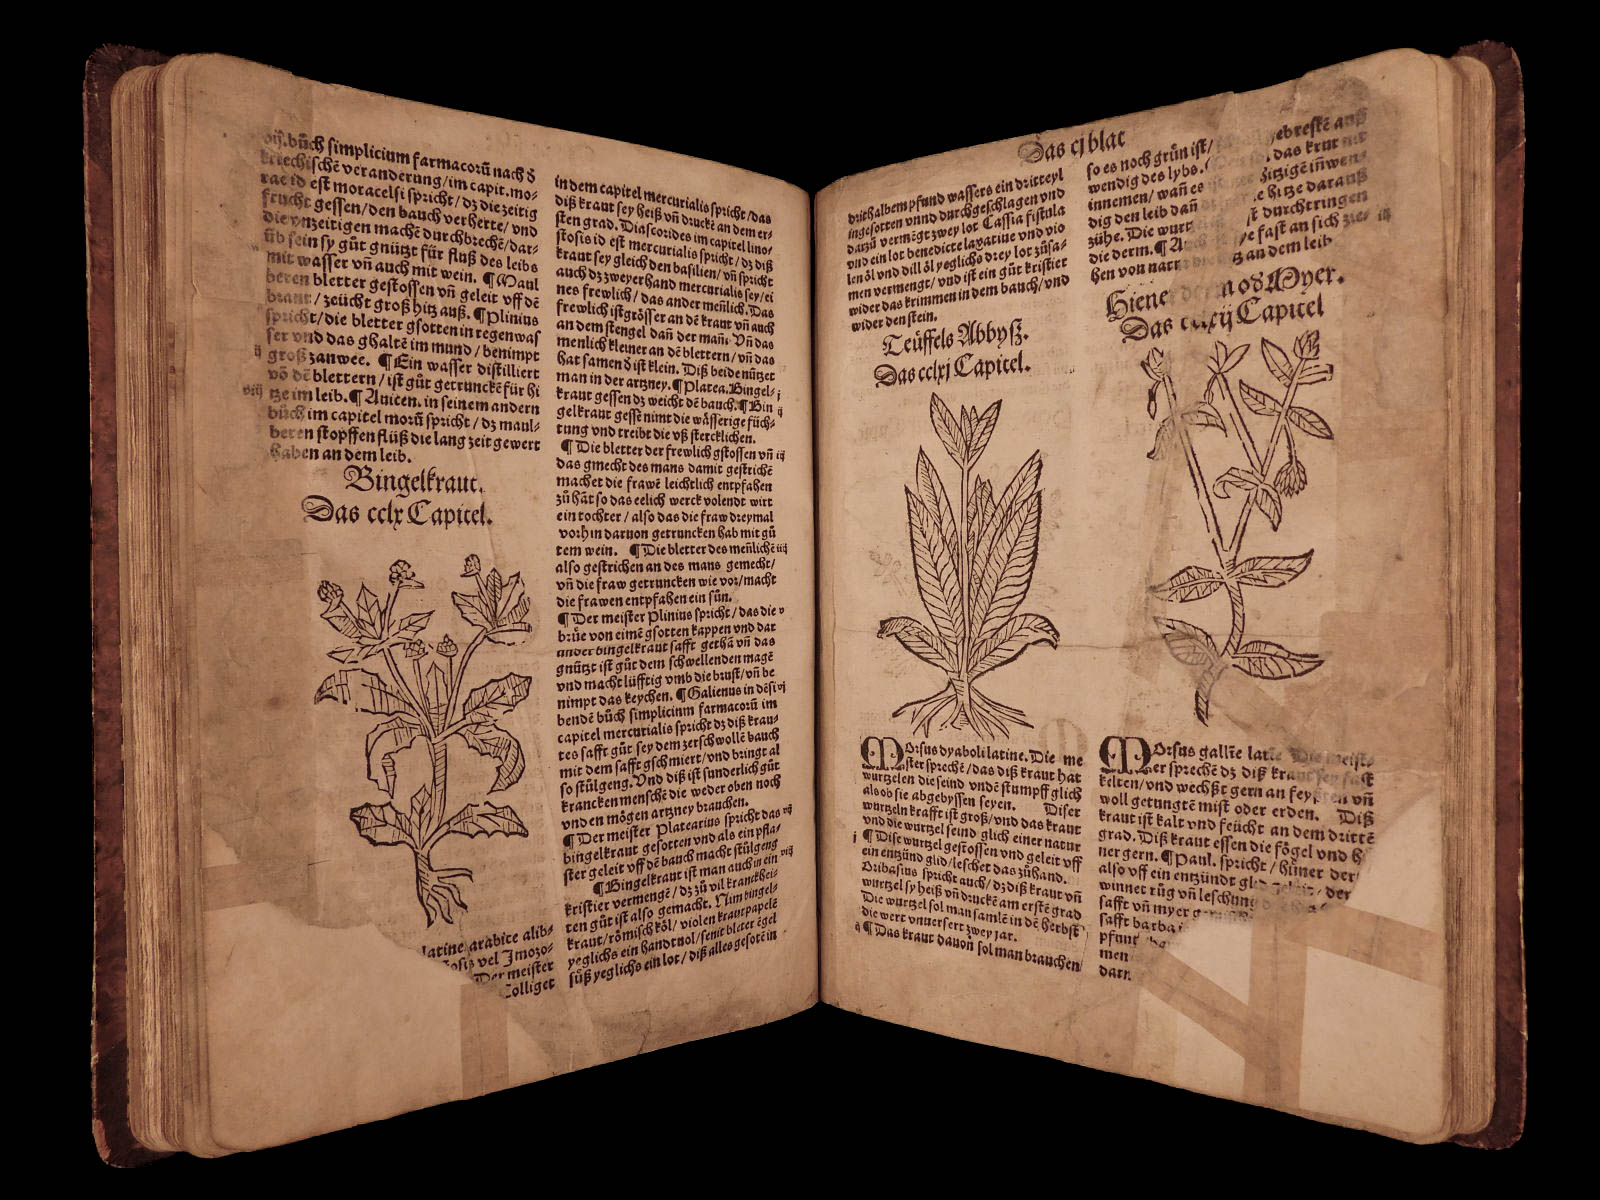 büch simplicium farmacorū nach d̄
kriechischē veranderung/im capit.mo-
rae id est moracelsi spricht/dz die zeitig
frucht gessen/den bauch verherte/vnd
die vnzeitigen machē durchbrechē/dar-
üb sein sy gůt gnützt für fluß des leibs
mit wasser vñ auch mit wein. ¶ Maul
beren bletter gestossen vñ geleit vff dē
brant/zeücht groß hitz auß. ¶ Plinius
spricht/die bletter gsotten in regenwas
ser vnd das ghaltē im mund/benimpt
ij groß zanwee. ¶ Ein wasser distilliert
vō dē blettern/ist gůt getrunckē für hi
viij tze im leib. ¶ Auicen. in seinem andern
bůch im capitel morū spricht/dz maul-
beren stopffen flüß die lang zeit gewert
haben an dem leib.
Bingelkraut.
Das cclx Capitel.
latine arabice alib-
osis vel Jmozo-
Der meister
Colliget
in dem capitel mercurialis spricht/das
diß kraut sey heiß vñ druckē an dem er-
sten grad. Diascorides im capitel lino-
stosis id est mercurialis spricht/dz diß
kraut sey gleich den basilien/vñ spricht
auch dz zweyerhand mercurialis sey/ei
nes frewlich/das ander meñlich. Das
frewlich ist grösser an dē kraut vñ auch
an dem stengel dañ der mañ. Vñ das
menlich kleiner an dē blettern/vñ das
hat samen d̄ ist klein. Diß beide nützet
man in der artzney. ¶ Platea. Bingel- j
kraut gessen dz weicht dē bauch. ¶ Bin ij
gelkraut gessē nimt die wässerige füch-
tung vnd treibt die vß stercklichen.
¶ Die bletter der frewlich gstossen vñ iij
das gmecht des mans damit gestrichē
machet die frawē leichtlich entpfahen
zů hāt so das eelich werck volendt wirt
ein tochter/also das die fraw dreymal
vorhin daruon getruncken hab mit gů
tem wein. ¶ Die bletter des meñlichē iiij
also gestrichen an des mans gemecht/
vñ die fraw getruncken wie vor/macht
die frawen entpfahen ein sün.
¶ Der meister Plinius spricht/das die v
brüe von eimē gsotten kappen vnd dar
under bingelkraut safft gethā vñ das
gnützt ist gůt dem schwellenden magē
vnd macht lüfftig vmb die brust/vñ be
nimpt das keychen. ¶ Galienus in dē si vj
bendē bůch simplicium farmacorū im
capitel mercurialis spricht dz diß krau-
tes safft gůt sey dem zerschwollē bauch
mit dem safft gschmiert/vnd bringt al
so stülgeng. Vnd diß ist sunderlich gůt
krancken menschē die weder oben noch
vnden mögen artzney brauchen.
¶ Der meister Platearius spricht das vij
bingelkraut gesotten vnd als ein pfla-
ster geleit vff dē bauch macht stülgeng
¶ Bingelkraut ist man auch in ein viij
kristier vermengē/dz zů vil kranckhei-
ten gůt ist also gemacht. Nim bingel-
kraut/römisch köl/violen kraut papelē
yeglichs ein handtuol/senit bletter ēgel
süß yeglichs ein lot/diß alles gesotē in
Das cj blat
drithalbem pfund wassers ein dritteyl
ingesotten vnnd durchgeschlagen vnd
darzů vermēgt zwey lot Cassia fistula
vnd ein lot benedicte laxatiue vnd vio
len öl vnd dill öl yeglichs drey lot zůsa-
men vermengt/vnd ist ein gůt kristier
wider das krimmen in dem bauch/vnd
wider den stein.
Teüffels Abbyß.
Das cclxj Capitel.
MOrsus dyaboli latine. Die me
ster sprechē/das diß kraut hat
wurtzelen die seind vndē stumpff glich
als ob sie abgebyssen seyen. Diser
wurtzeln krafft ist groß/vnd das kraut
vnd die wurtzel seind glich einer natur
j ¶ Dise wurtzel gestossen vnd geleit vff
ein entzünd glid/leschet das zůhand.
Oribasius spricht auch/dz diß kraut vñ
wurtzel sy heiß vñ druckē am erstē grad
Die wurtzel sol man samlē in dē herbst
die wert vnuersert zwey jar.
ij ¶ Das kraut dauon sol man brauchen
so es noch grün ist/ gebrestē auß
wendig des lybs. das krut
innemen/wañ es hitzigē iñwen-
dig den leib dañ hitze darauß
zühe. Die wurtz st durchtringen
die derm. ¶ fast an sich zie- iij
hen von natr an dem leib
Hiener od Myer.
Das cclxij Capitel
MOrsus galline latine Die meist-
er sprechē dz diß kraut sey fast
kelten/vnd wechßt gern an feyßten vñ
woll getungtē mist oder erden. Diß
kraut ist kalt vnd feücht an dem drittē
grad. Diß kraut essen die fögel vnd h
ner gern. ¶ Paul. spricht/hüner der
also vff ein entzündt glid geleit/der
winnet rüg vñ leschung
safft vñ myer
safft barba
pfunt
men
darn